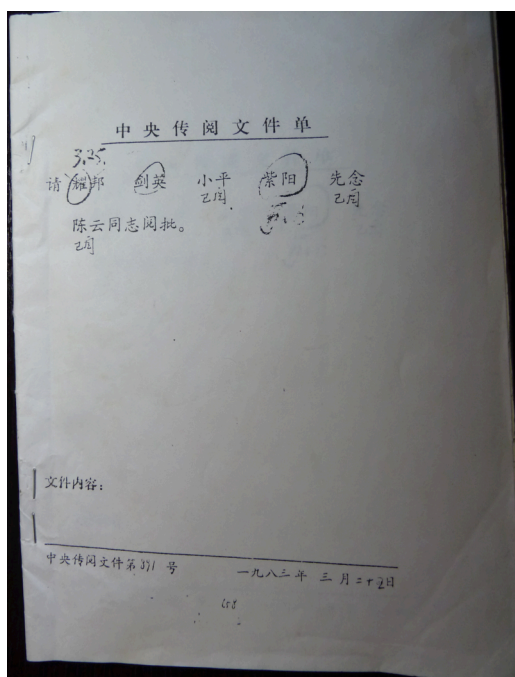 中央传阅文件单
3.25.
请 耀邦 剑英 小平 紫阳 先念
已阅 已阅
陈云同志阅批。
已阅
文件内容：
中央传阅文件第 891 号
一九八三年 三月二十五日